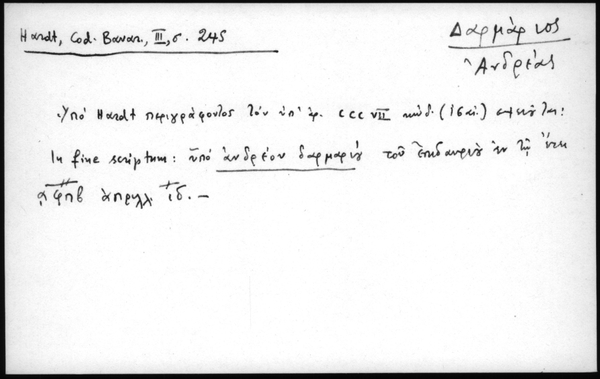 Hardt, Cod. Bavar., III, σ. 245
Δαρμάριος
Ἀνδρέας
Ὑπό Hardt περιγράφοντος τόν ὑπ' ἀρ. CCCVII κώδ. (ἰσαι.)
In fine scriptum: ὑπό ἀνδρέου δαρμαρίου τοῦ ἐπιδαυρίου ἐν τῷ ἔτει
αφπβ ἀπριλλ. ιδ. –